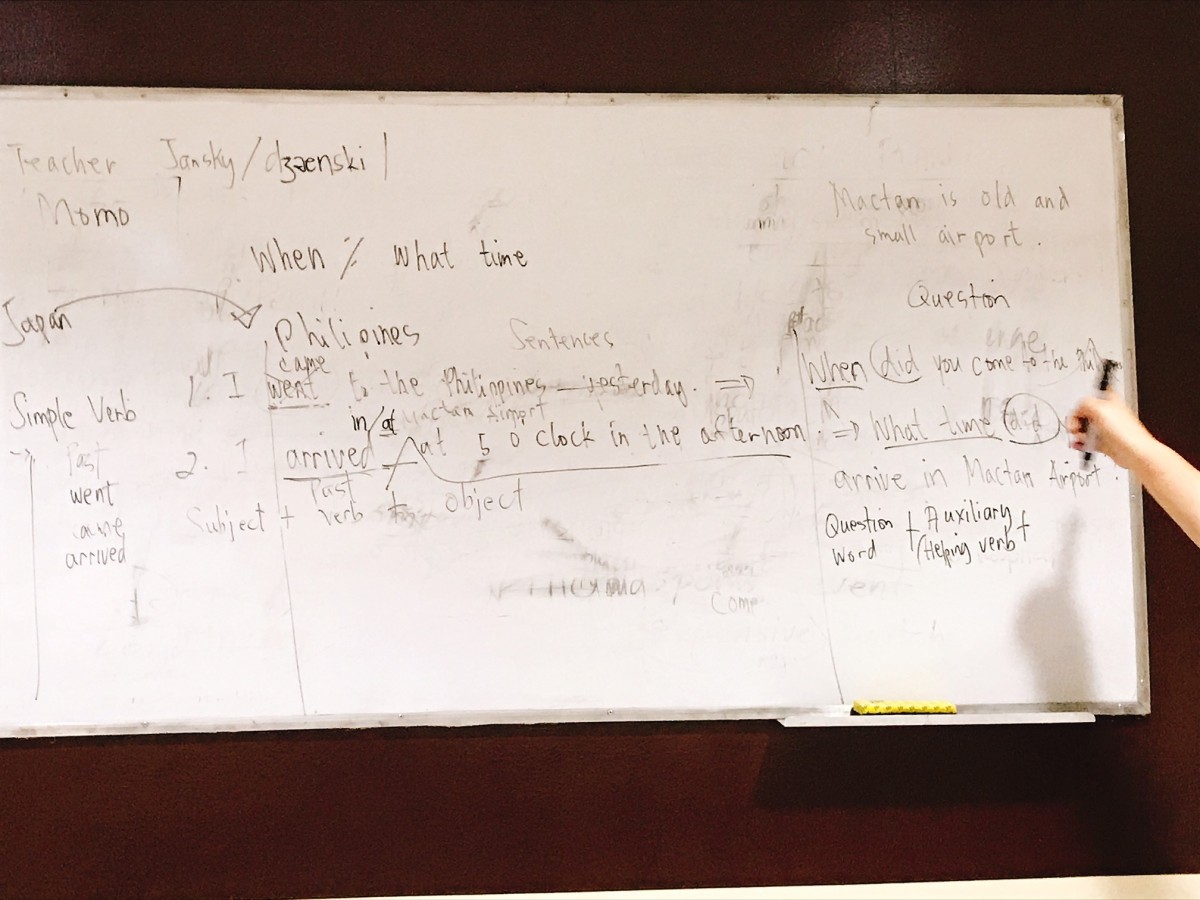 Teacher Jansky/dʒænski
Momo
When / What time
Mactan is old and
small airport.
Japan
Philipines
Sentences
Question
came
1. I went to the Philippines yesterday. ⇒ When did you come to the
in/at Mactan Airport
2. I arrived at 5 o'clock in the afternoon. ⇒ What time did
arrive in Mactan Airport.
Subject + Past verb + object
Question word + Auxiliary /Helping verb +
Simple Verb
→ Past
went
came
arrived
Comp